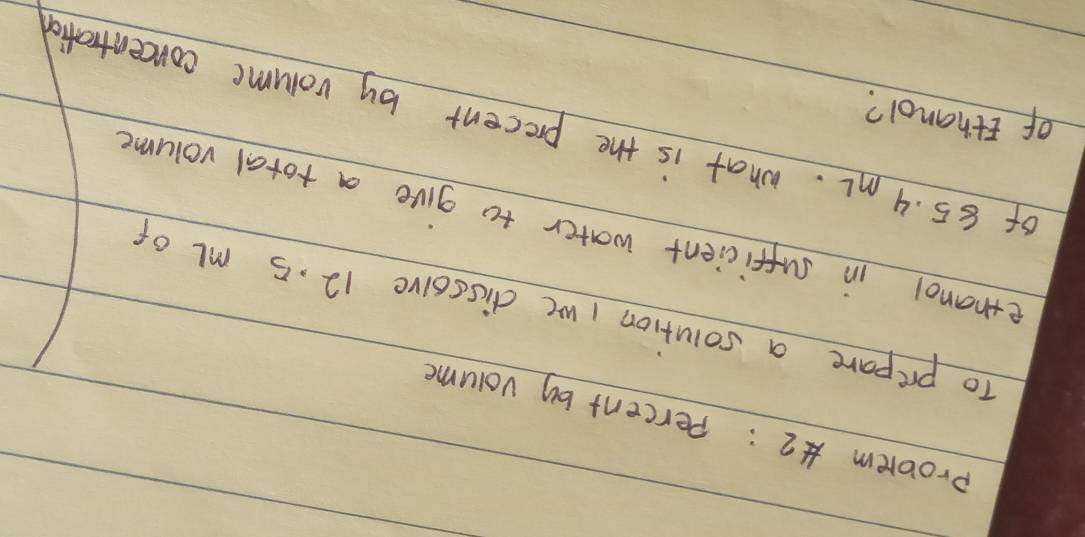 Problem #2: Percent by volume
To prepare a solution, we dissolve 12.5 mL of
ethanol in sufficient water to give a total volume
of 85.4 mL. What is the precent by volume concentration
of Ethanol?